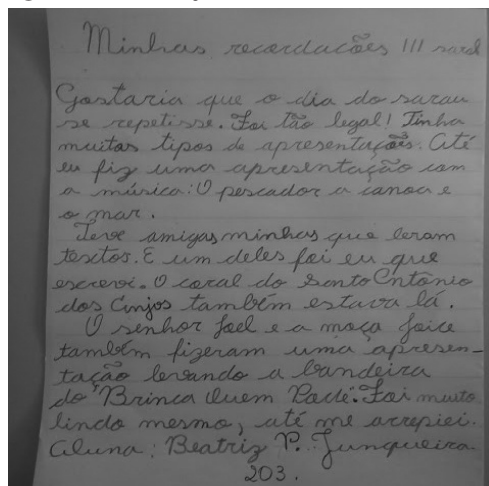 Minhas recordações III saral
Gostaria que o dia do sarau
se repetisse. Foi tão legal! Tinha
muitas tipos de apresentações. Até
eu fiz uma apresentação com
a música: O pescador a canoa e
o mar.
Teve amigas minhas que leram
textos. E um deles foi eu que
escrevi. O coral do Santo Antônio
dos Anjos também estava lá.
O senhor Joel e a moça Joice
também fizeram uma apresen-
tação levando a bandeira
do "Brinca Quem Pode". Foi muito
lindo mesmo, até me arrepiei.
Aluna: Beatriz P. Junqueira
203.